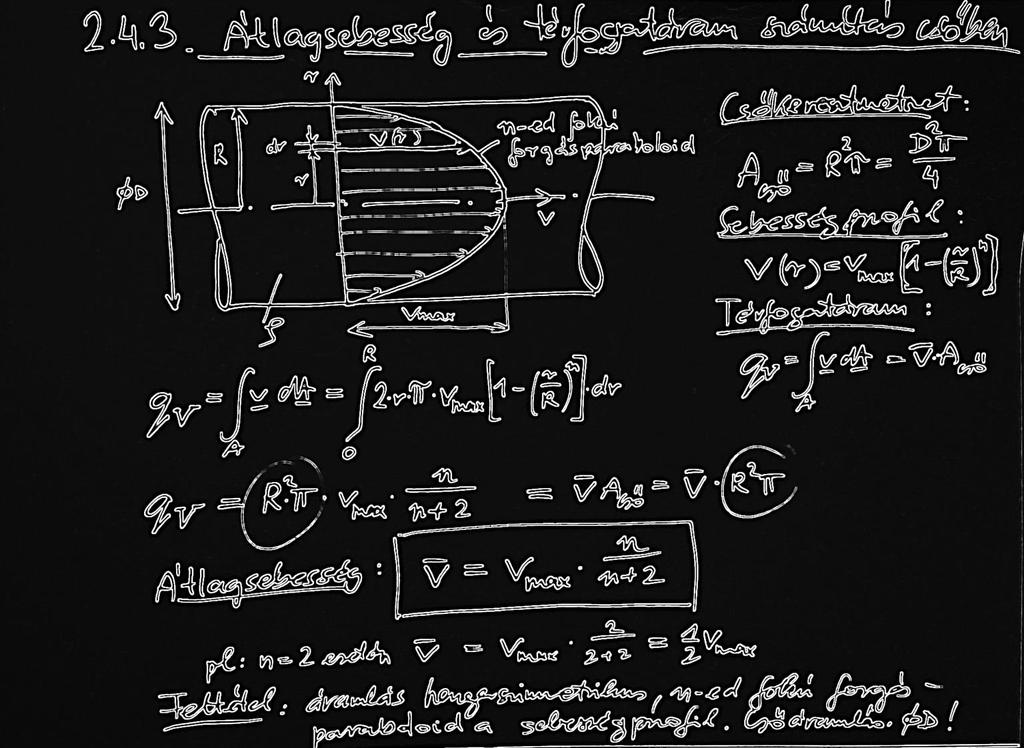 2.4.3. Átlagsebesség és térfogatáram számítás csőben
r
R
dr
r
v(r)
n-ed fokú
forgásparaboloid
ØD
v
ρ
vmax
Csőkeresztmetszet:
A_cső = R²π = D²π/4
Sebességprofil:
v(r) = v_max [1-(r/R)^n]
Térfogatáram:
q_V = ∫_A v dA = v̄·A_cső
q_V = ∫_A v dA = ∫_0^R 2·r·π·v_max [1-(r/R)^n]·dr
q_V = R²·π · v_max · n/(n+2) = v̄ A_cső = v̄ · R²π
Átlagsebesség: v̄ = v_max · n/(n+2)
pl: n=2 esetén v̄ = v_max · 2/(2+2) = 1/2 v_max
Feltétel: áramlás hengerszimmetrikus, n-ed fokú forgás-
paraboloid a sebességprofil. Csőáramlás. ØD!